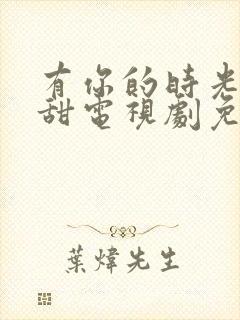 有你的時光
甜電視劇免
葉煒先生